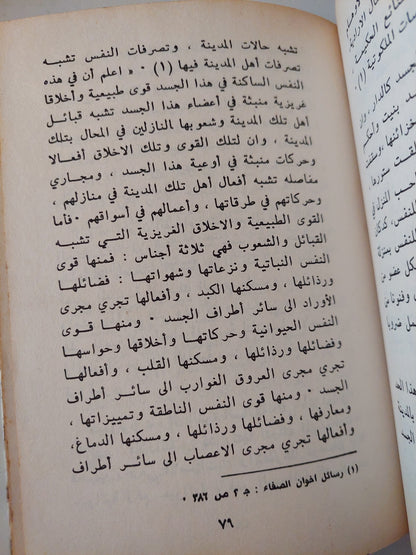 تشبه حالات المدينة ، وتصرفات النفس تشبه
تصرفات أهل المدينة فيها (١) ٠ « اعلم أن في هذه
النفس الساكنة في هذا الجسد قوى طبيعية وأخلاقا
غريزية منبثة في أعضاء هذا الجسد تشبه قبائل
أهل تلك المدينة وشعوبها النازلين في المحال بتلك
المدينة ، وان لتلك القوى وتلك الاخلاق أفعالا
وحركات منبثة في أوعية هذا الجسد ، ومجاري
مفاصله تشبه أفعال أهل تلك المدينة في منازلهم ،
وحركاتهم في طرقاتها ، وأعمالهم في أسواقهم ٠ فأما
القوى الطبيعية والاخلاق الغريزية التي تشبه
القبائل والشعوب فهي ثلاثة أجناس : فمنها قوى
النفس النباتية ونزعاتها وشهواتها : فضائلها
ورذائلها ، ومسكنها الكبد ، وأفعالها تجري مجرى
الأوراد الى سائر أطراف الجسد ٠ ومنها قوى
النفس الحيوانية وحركاتها وأخلاقها وحواسها
وفضائلها ورذائلها ، ومسكنها القلب ، وأفعالها
تجري مجرى العروق الغوارب الى سائر أطراف
الجسد ٠ ومنها قوى النفس الناطقة وتمييزاتها ،
ومعارفها ، وفضائلها ورذائلها ، ومسكنها الدماغ،
وأفعالها تجري مجرى الاعصاب الى سائر أطراف
(١) رسائل اخوان الصفاء : ج ٢ ص ٣٨٦ ٠
٧٩